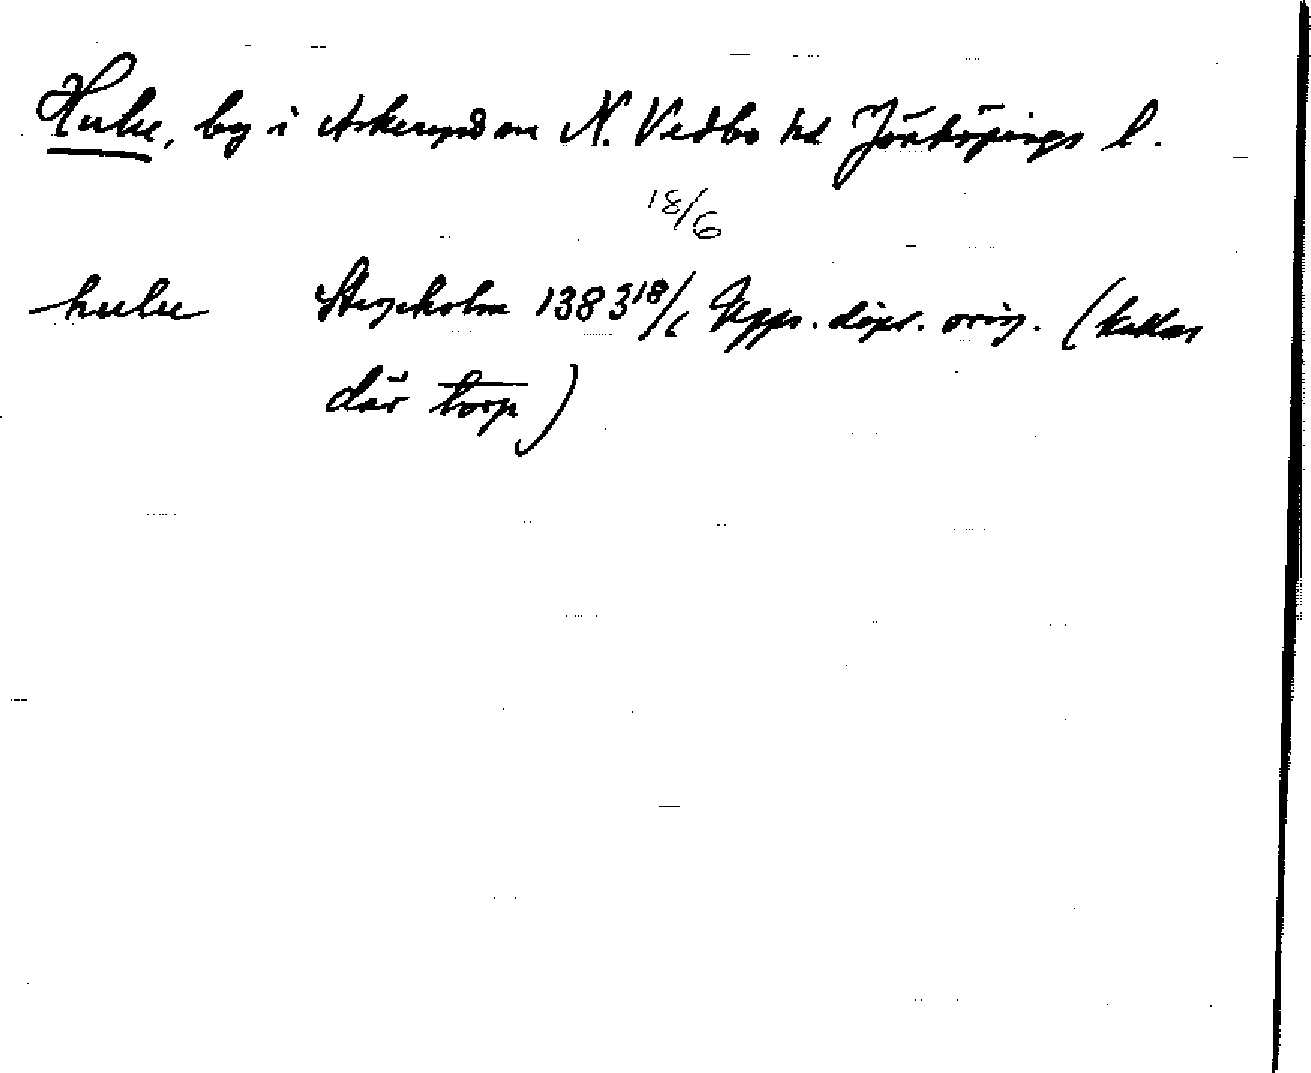 Hulu, by i Askeryd sn N. Vedbo hd Jönköpings l.
18/6
hulu Stegeholm 1383 18/6 Upps. dipl. orig. (kallas
där torp)